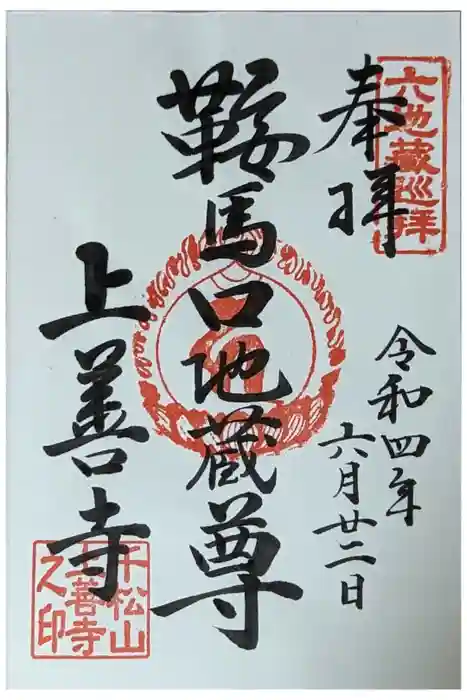 六地蔵巡拝
奉拝
令和四年
六月廿二日
鞍馬口地蔵尊
上善寺
千松山
上善寺
之印